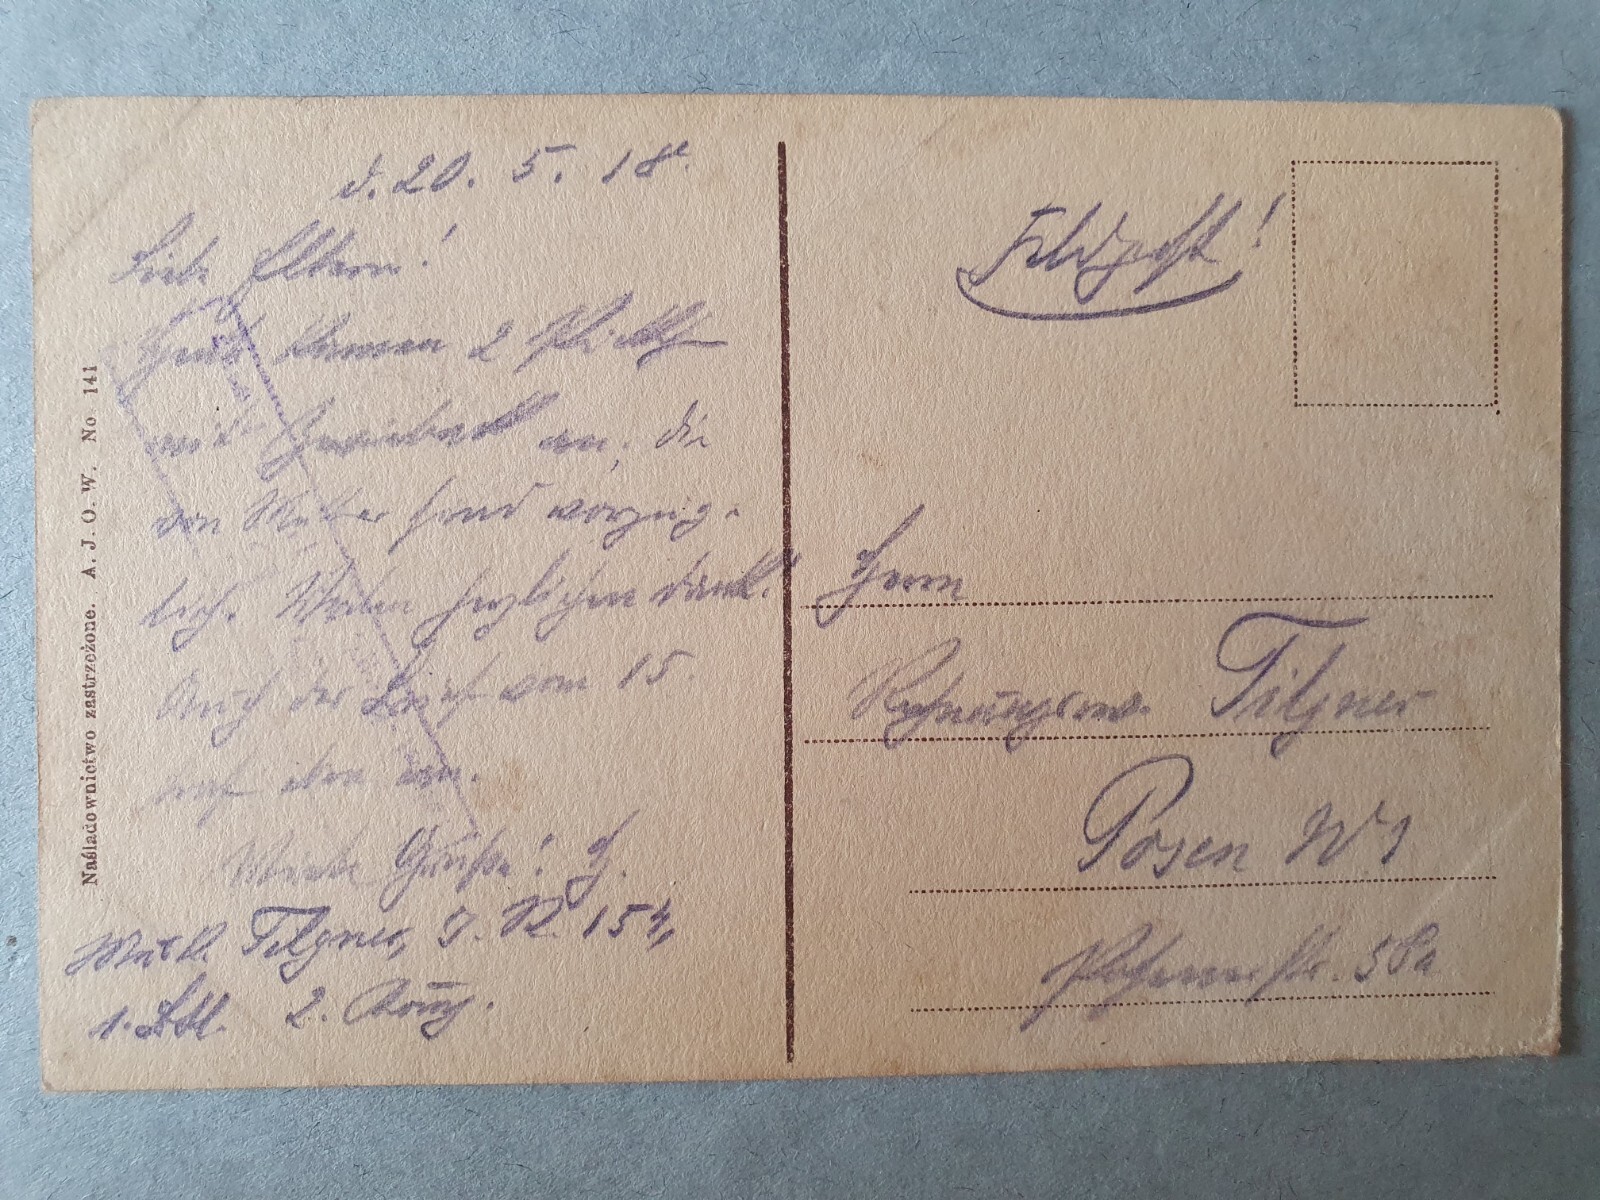 d. 20. 5. 18.
Liebe Eltern!
Heute kamen 2 Pakete
mit Zwieback an, die
von Mutter sind vorzüg-
lich. Vielen herzlichen Dank!
Auch der Brief vom 15.
traf eben ein.
Viele Grüße! H.
Musk. Tilgner, I. R. 154,
1. Btl. 2. Komp.
Naśladownictwo zastrzeżone. A. J. O. W. No 141
Feldpost!
Herrn
Tilgner
Posen W 1